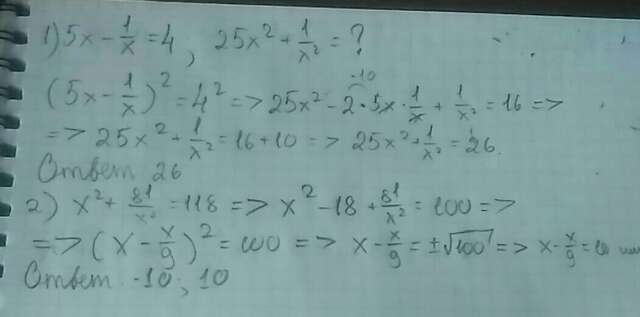 1) 5x - 1/x = 4, 25x² + 1/x² = ?
-10
(5x - 1/x)² = 4² => 25x² - 2·5x·1/x + 1/x² = 16 =>
=> 25x² + 1/x² = 16 + 10 => 25x² + 1/x² = 26.
Ответ 26
2) x² + 81/x² = 118 => x² - 18 + 81/x² = 100 =>
=> (x - x/9)² = 100 => x - x/9 = ±√100 => x - x/9 = 10 или
Ответ -10; 10